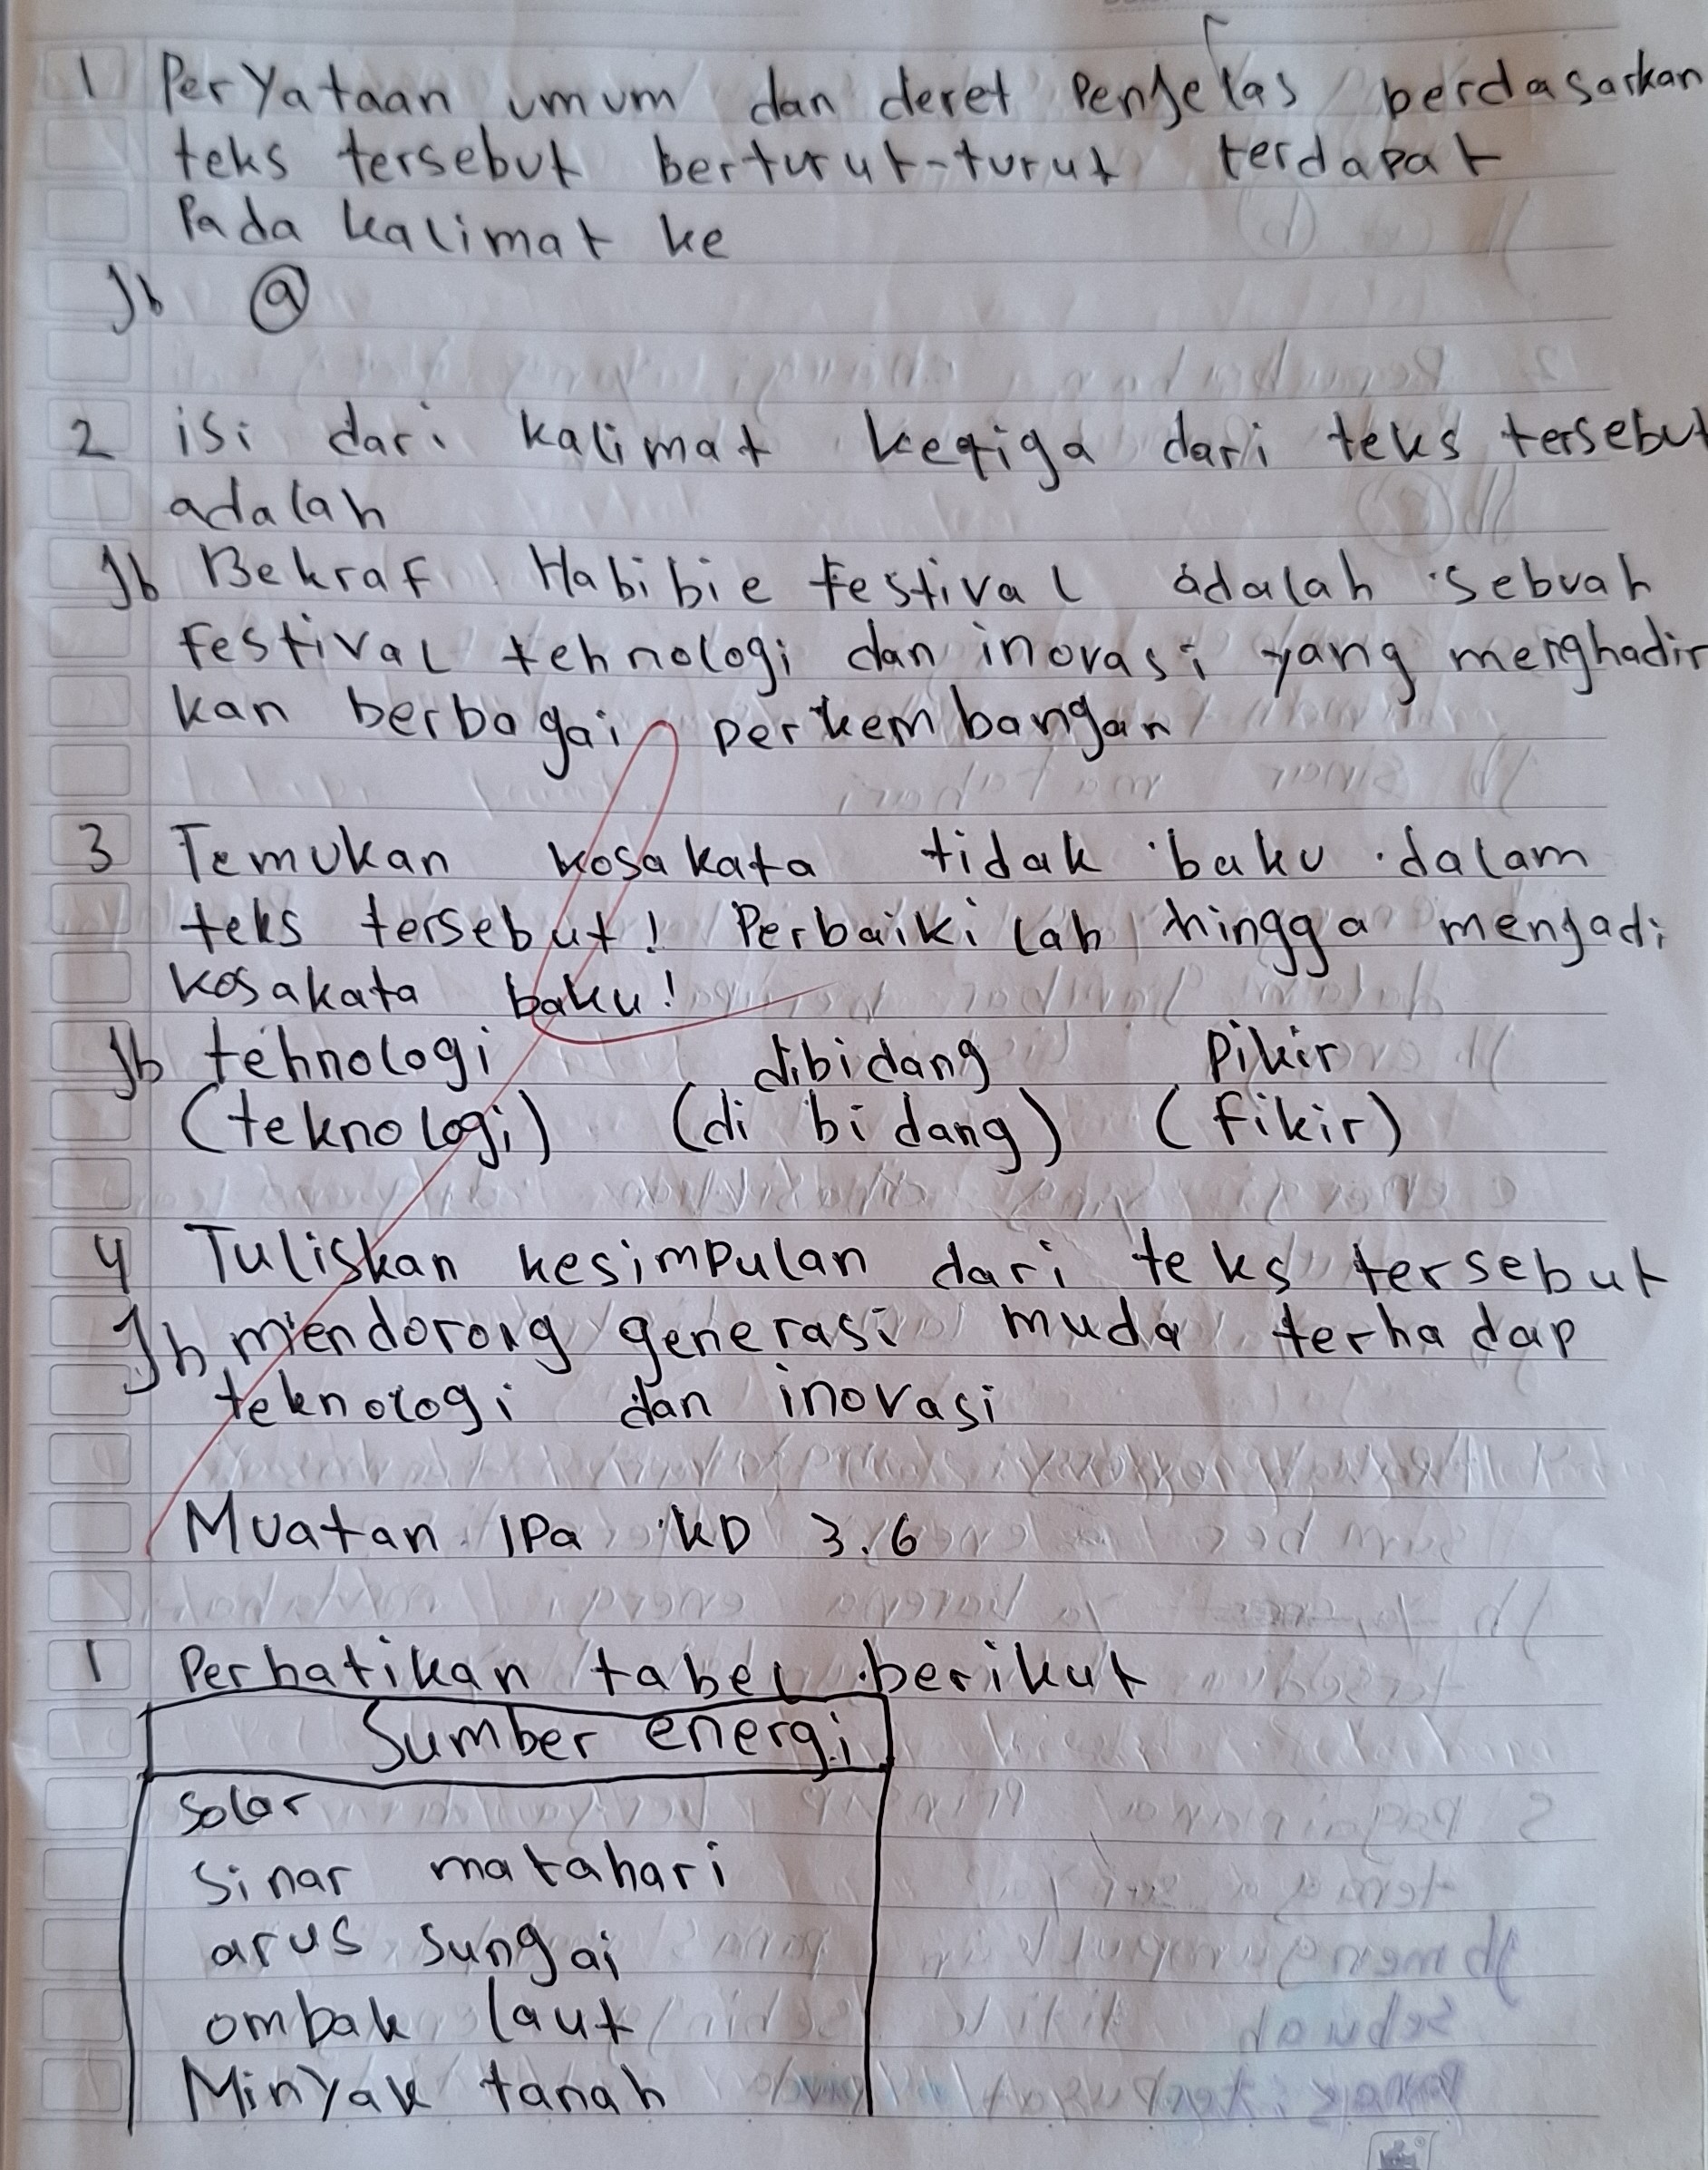 1 Peryataan umum dan deret Penjelas berdasarkan
teks tersebut berturut-turut terdapat
Pada kalimat ke
Jb a
2 isi dari kalimat ketiga dari teks tersebut
adalah
Jb Bekraf Habibie festival adalah sebuah
festival tehnologi dan inovasi yang menghadir
kan berbagai perkembangan
3 Temukan kosakata tidak baku dalam
teks tersebut! Perbaiki lah hingga menjadi
kosakata baku!
Jb tehnologi dibidang Pikir
(teknologi) (di bidang) (fikir)
4 Tuliskan kesimpulan dari teks tersebut
Jb mendorong generasi muda terhadap
teknologi dan inovasi
Muatan IPa KD 3.6
1 Perhatikan tabel berikut
Sumber energi
Solar
Sinar matahari
arus sungai
ombak laut
Minyak tanah